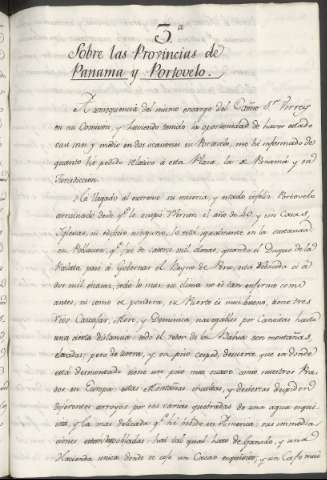 3.ª
Sobre las Provincias de
Panama y Portovelo.
A consequencia del mismo encargo del Exmo Sr. Virrey
en mi Comision, y haviendo tenido la oportunidad de haver estado
un mes y medio en dos ocasiones en Portovelo, me he informado de
quanto he podido relativo à esta Plaza, la de Panamá y su
Jurisdiccion.
Ha llegado al extremo su miseria, y estado infeliz. Portovelo
arruinado desde qe. le ocupó Vernon el año de 40, y sin Casas,
Iglesias, ni edificio ninguno, lo està igualmente en la sustancia
su Poblacion, qe. fuè de catorce mil almas, quando el Duque de la
Palata pasò à Governar el Reyno de Peru, està reducida oi à
dos mil almas, todo lo mas. su clima no és tan enfermo como
antes, ni como se pondera, su Puerto és mui bueno, tiene tres
Rios Cascajal, Mere, y Dominica, navegables por Canoitas hasta
una cierta distancia: todo el redor de la Bahia son montañas,
elevadas; pero de tierra, y en piso desigual, desuerte que en donde
està desmontado tiene un pasto mui bueno como nuestros Pra-
dos en Europa: estas Montañas elevadas, y desiertas despiden
diferentes arroyos por sus varias quebradas de una agua exquisi-
ta, y la mas delicada qe. hè bebido en America: sus inmedia-
ciones estan despobladas: hai tal qual Hato de Ganado, y una
Hacienda unica donde se coje un Cacao exquisito, y un Cafe mui